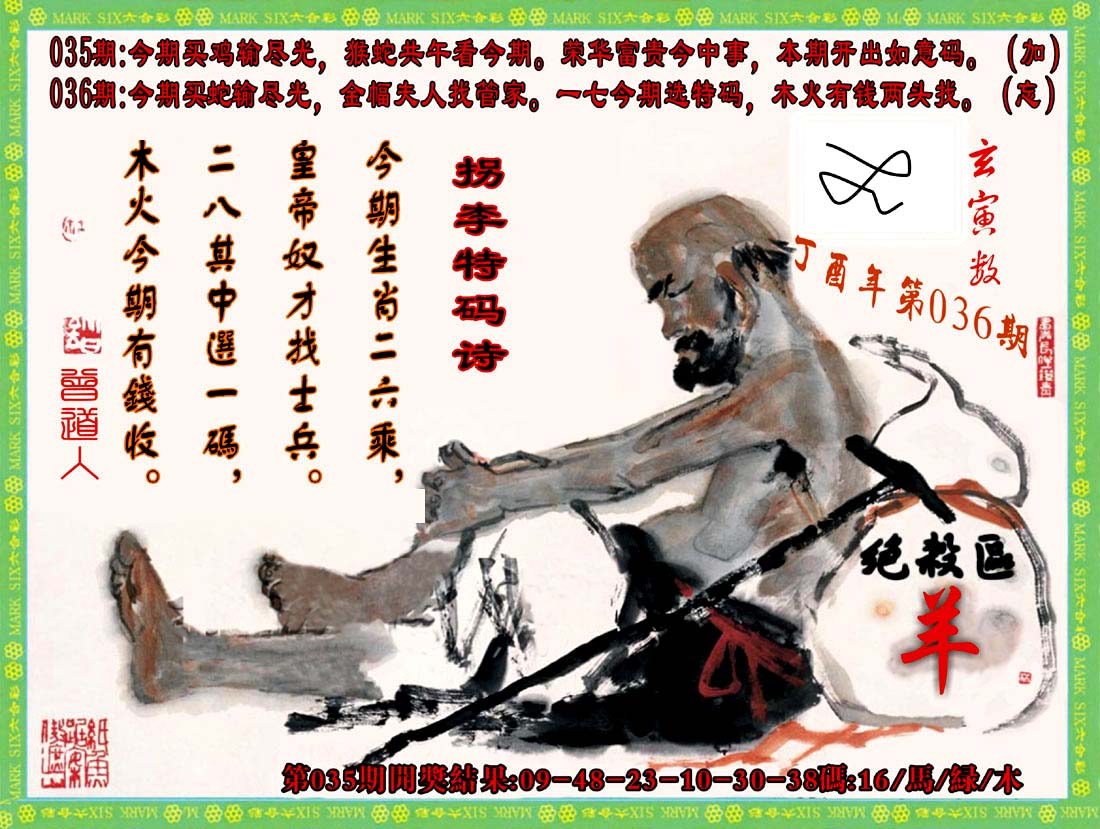 MARK SIX六合彩
035期:今期买鸡输尽光，猴蛇共午看今期。荣华富贵今中事，本期开出如意码。（加）
036期:今期买蛇输尽光，金幅夫人找管家。一七今期选特码，木火有钱两头找。（忘）
玄寅数
丁酉年第036期
拐李特码诗
今期生肖二六乘，
皇帝奴才找士兵。
二八其中選一碼，
木火今期有錢收。
曾道人
绝殺區
羊
第035期開獎結果:09-48-23-10-30-38碼:16/馬/緑/木